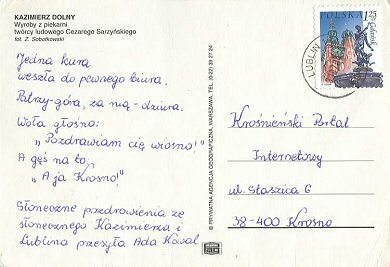 KAZIMIERZ DOLNY
Wyroby z piekarni
twórcy ludowego Cezarego Sarzyńskiego
fot. Z. Sobotkowski
Jedna kura
weszła do pewnego biura.
Patrzy-góra, za nią-dziura.
Woła głośno:
„Pozdrawiam cię wiosno!"
A gęś na to,
„A ja Krosno!"
Słoneczne pozdrowienia ze
słonecznego Kazimierza i
Lublina przesyła Ada Kowal
© PRYWATNA AGENCJA GEOGRAFICZNA, WARSZAWA, TEL.
POLSKA
1,25
zł
Gdańsk
LUBLIN
Krośnieński Portal
Internetowy
ul. Staszica 6
38-400 Krosno